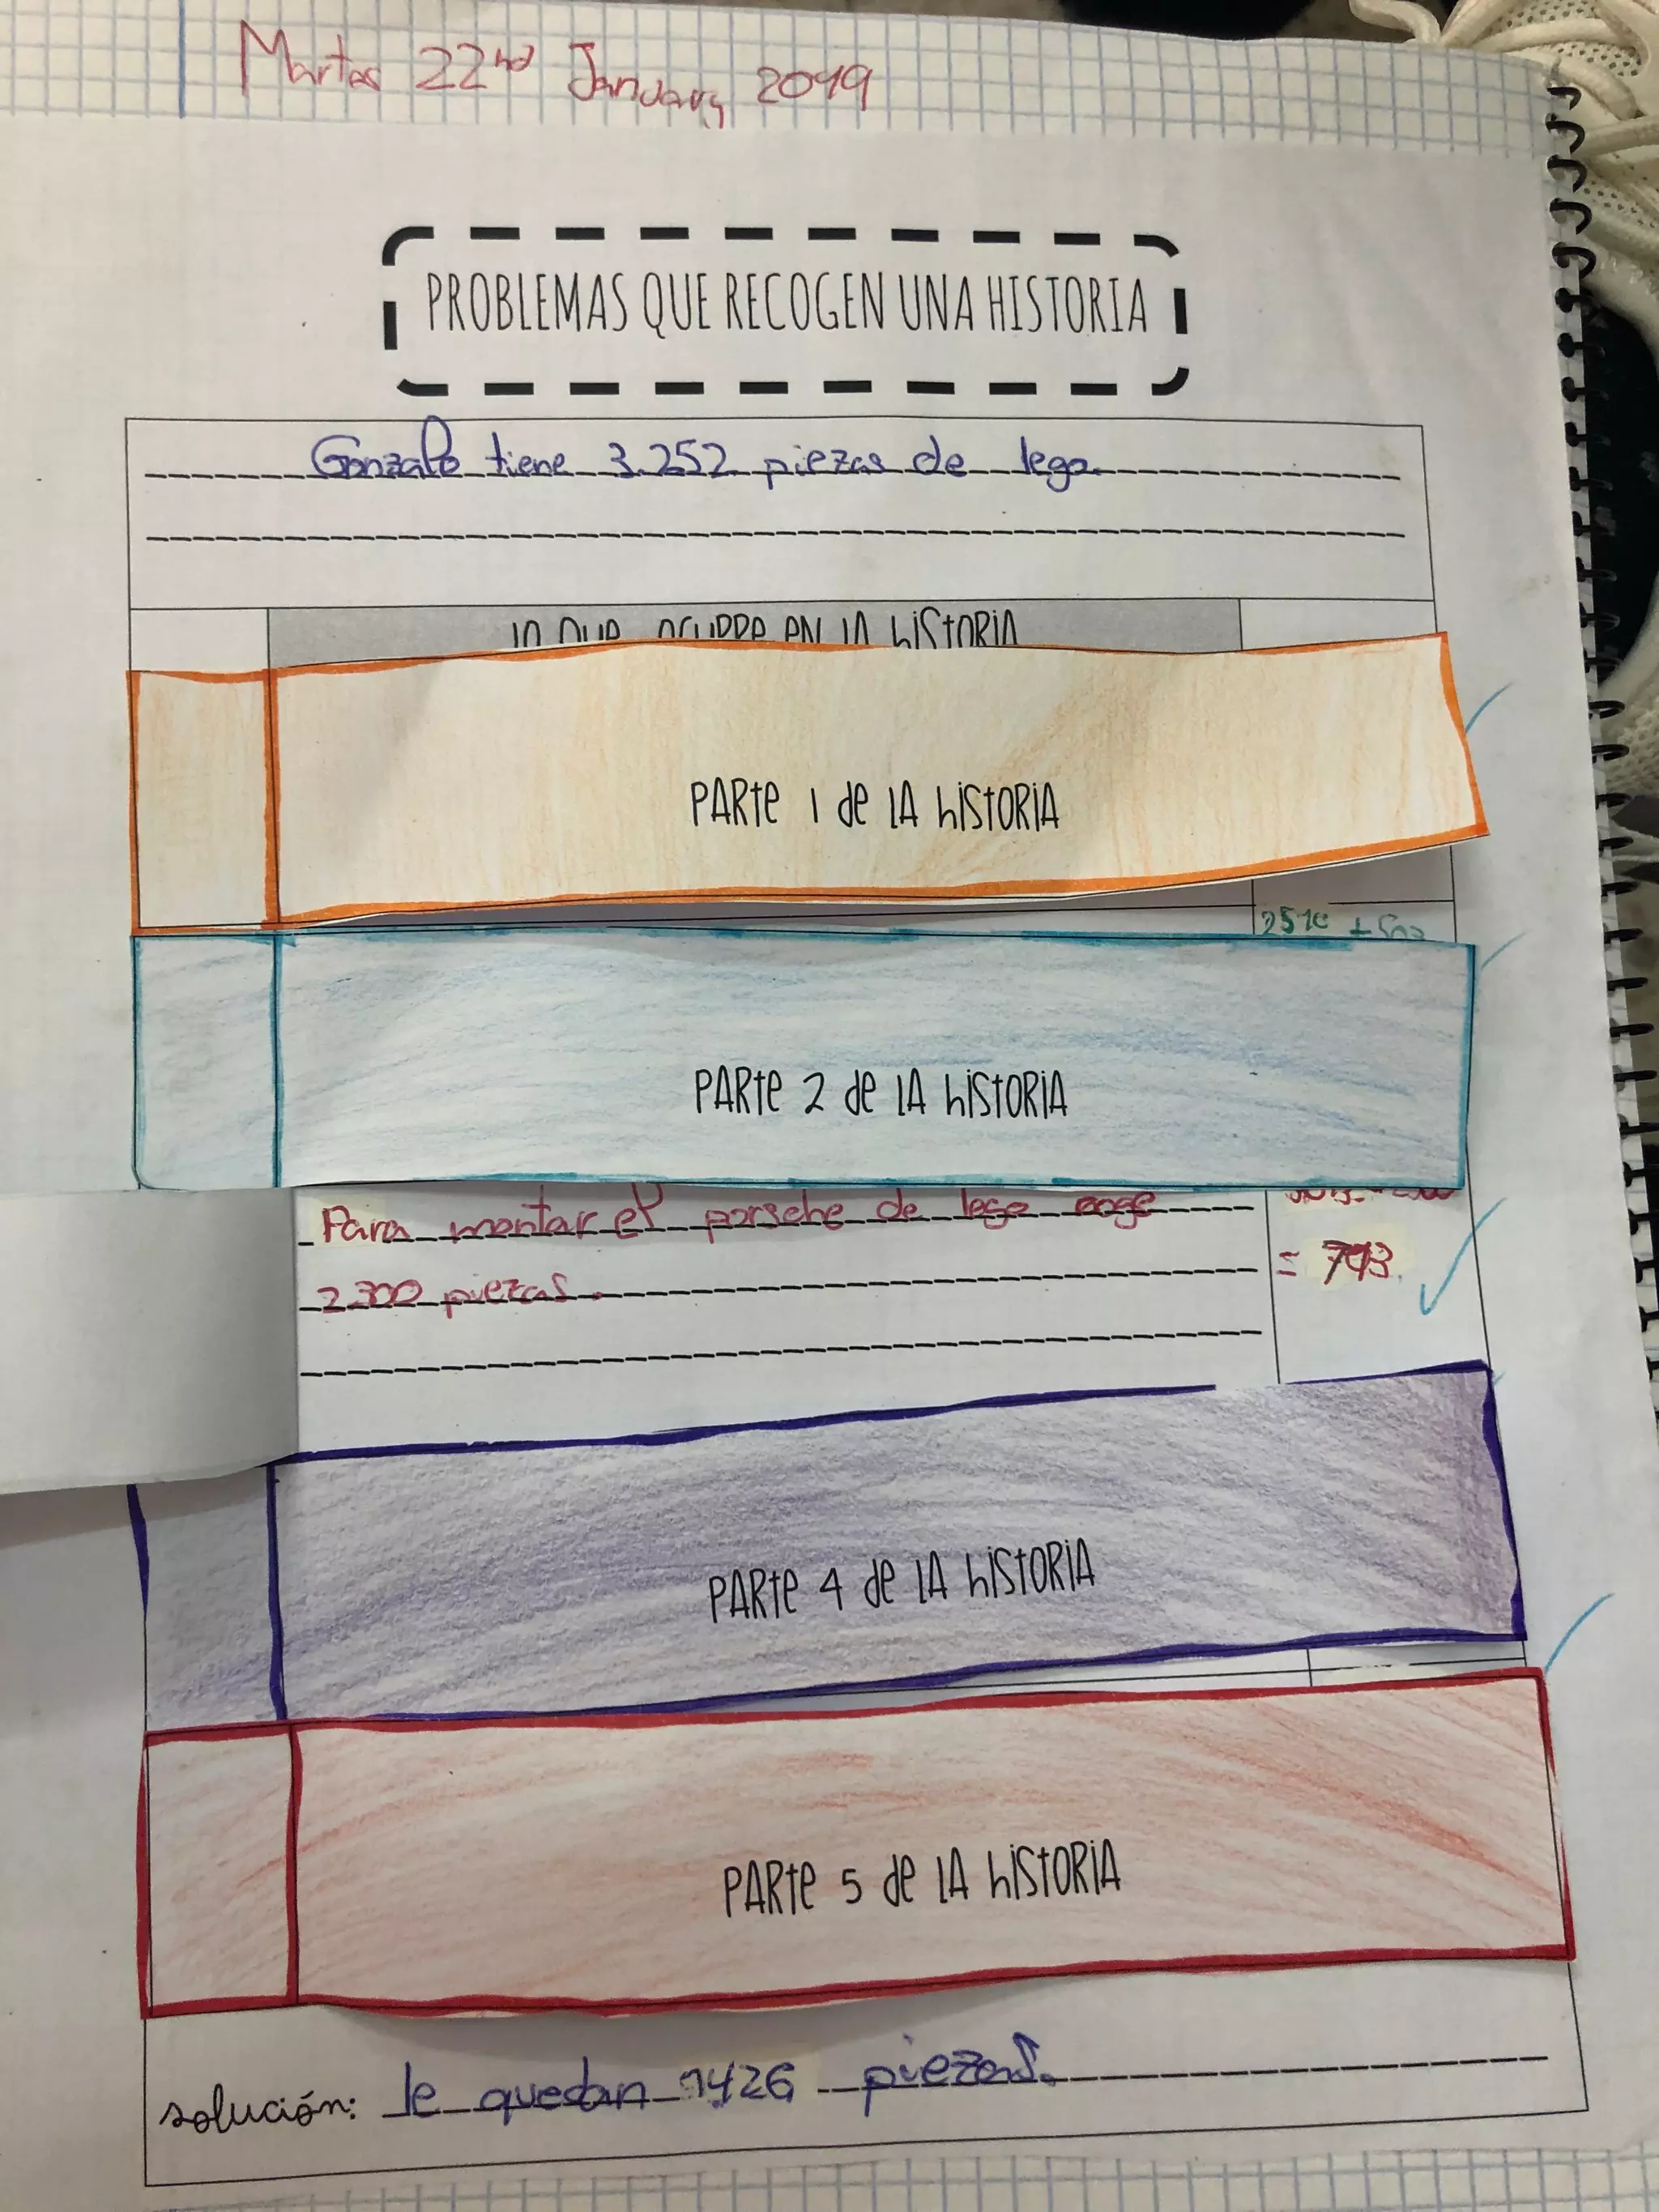 Martes 22nd January 2019
PROBLEMAS QUE RECOGEN UNA HISTORIA
Gonzalo tiene 3.252 piezas de lego.
lo que ocurre en la historia
PARTE 1 de LA HISTORIA
PARTE 2 de LA HISTORIA
Para montar el porsche de lego coge
2300 piezas.
= 793.
PARTE 4 de LA HISTORIA
PARTE 5 de LA HISTORIA
solución: le quedan 1426 piezas.